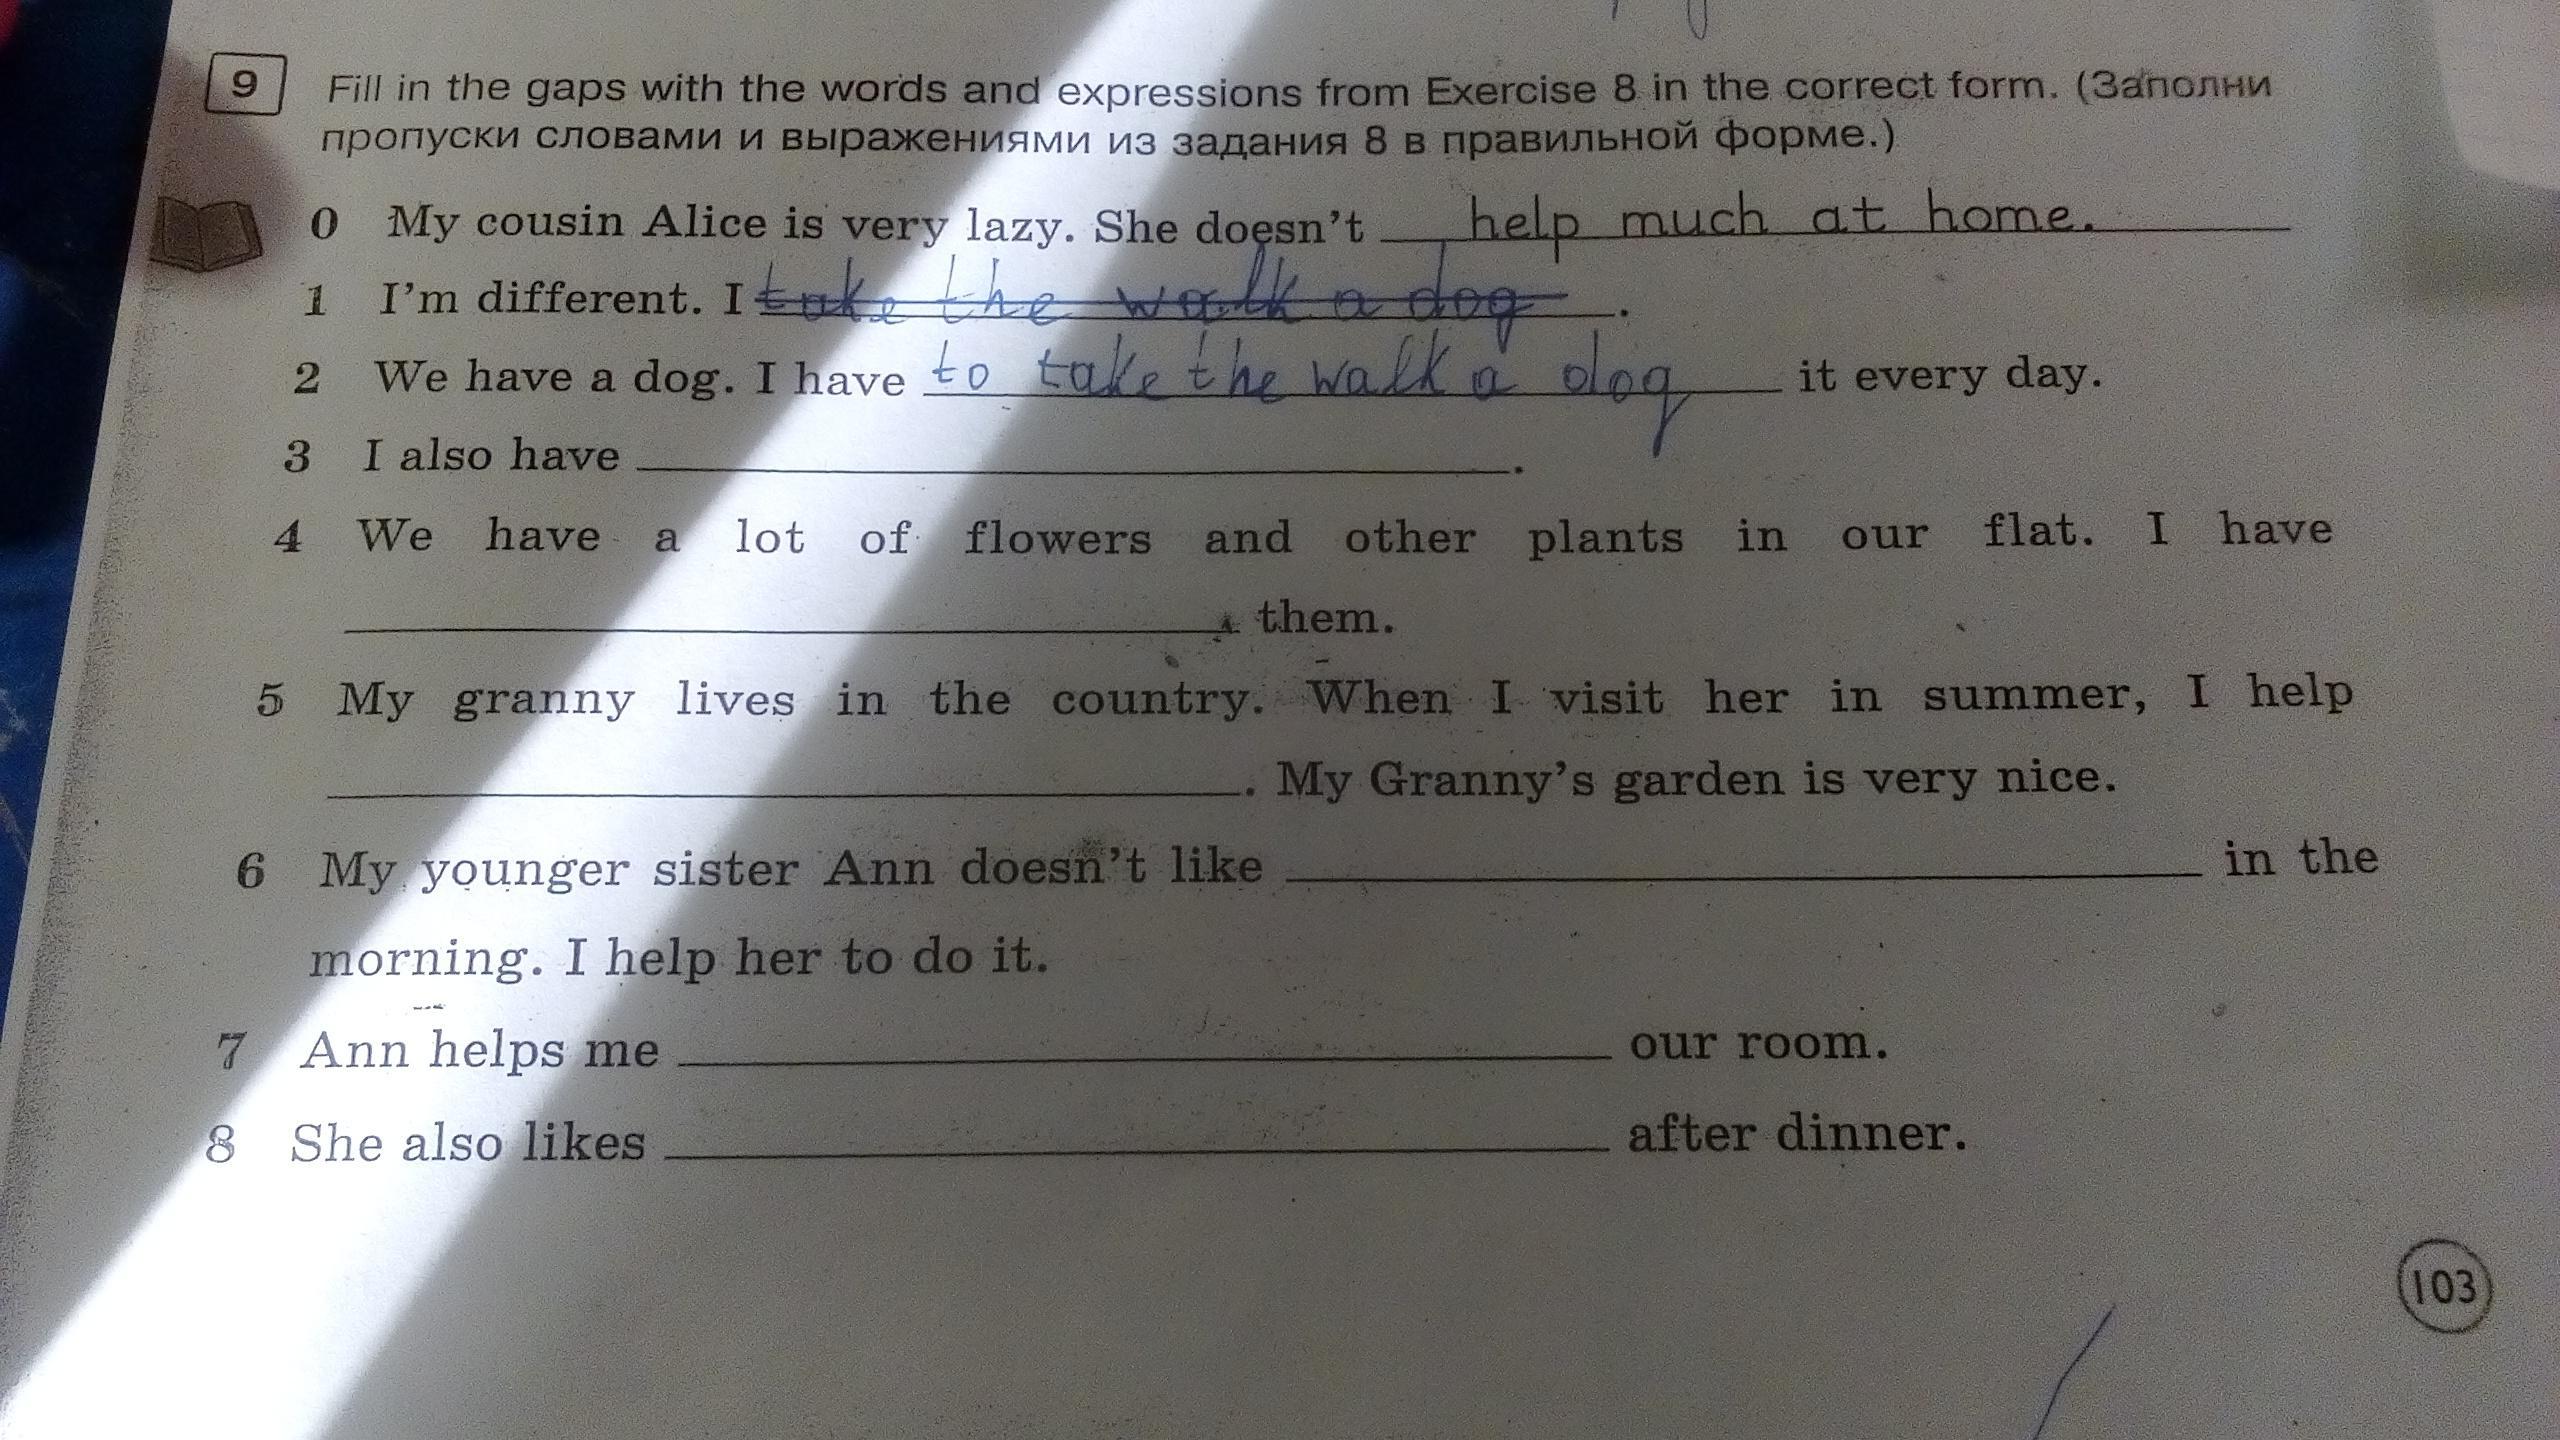 9 Fill in the gaps with the words and expressions from Exercise 8 in the correct form. (Заполни
пропуски словами и выражениями из задания 8 в правильной форме.)
0 My cousin Alice is very lazy. She doesn't help much at home.
1 I'm different. I take the walk a dog .
2 We have a dog. I have to take the walk a dog it every day.
3 I also have .
4 We have a lot of flowers and other plants in our flat. I have
them.
5 My granny lives in the country. When I visit her in summer, I help
. My Granny's garden is very nice.
6 My younger sister Ann doesn't like in the
morning. I help her to do it.
7 Ann helps me our room.
8 She also likes after dinner.
103